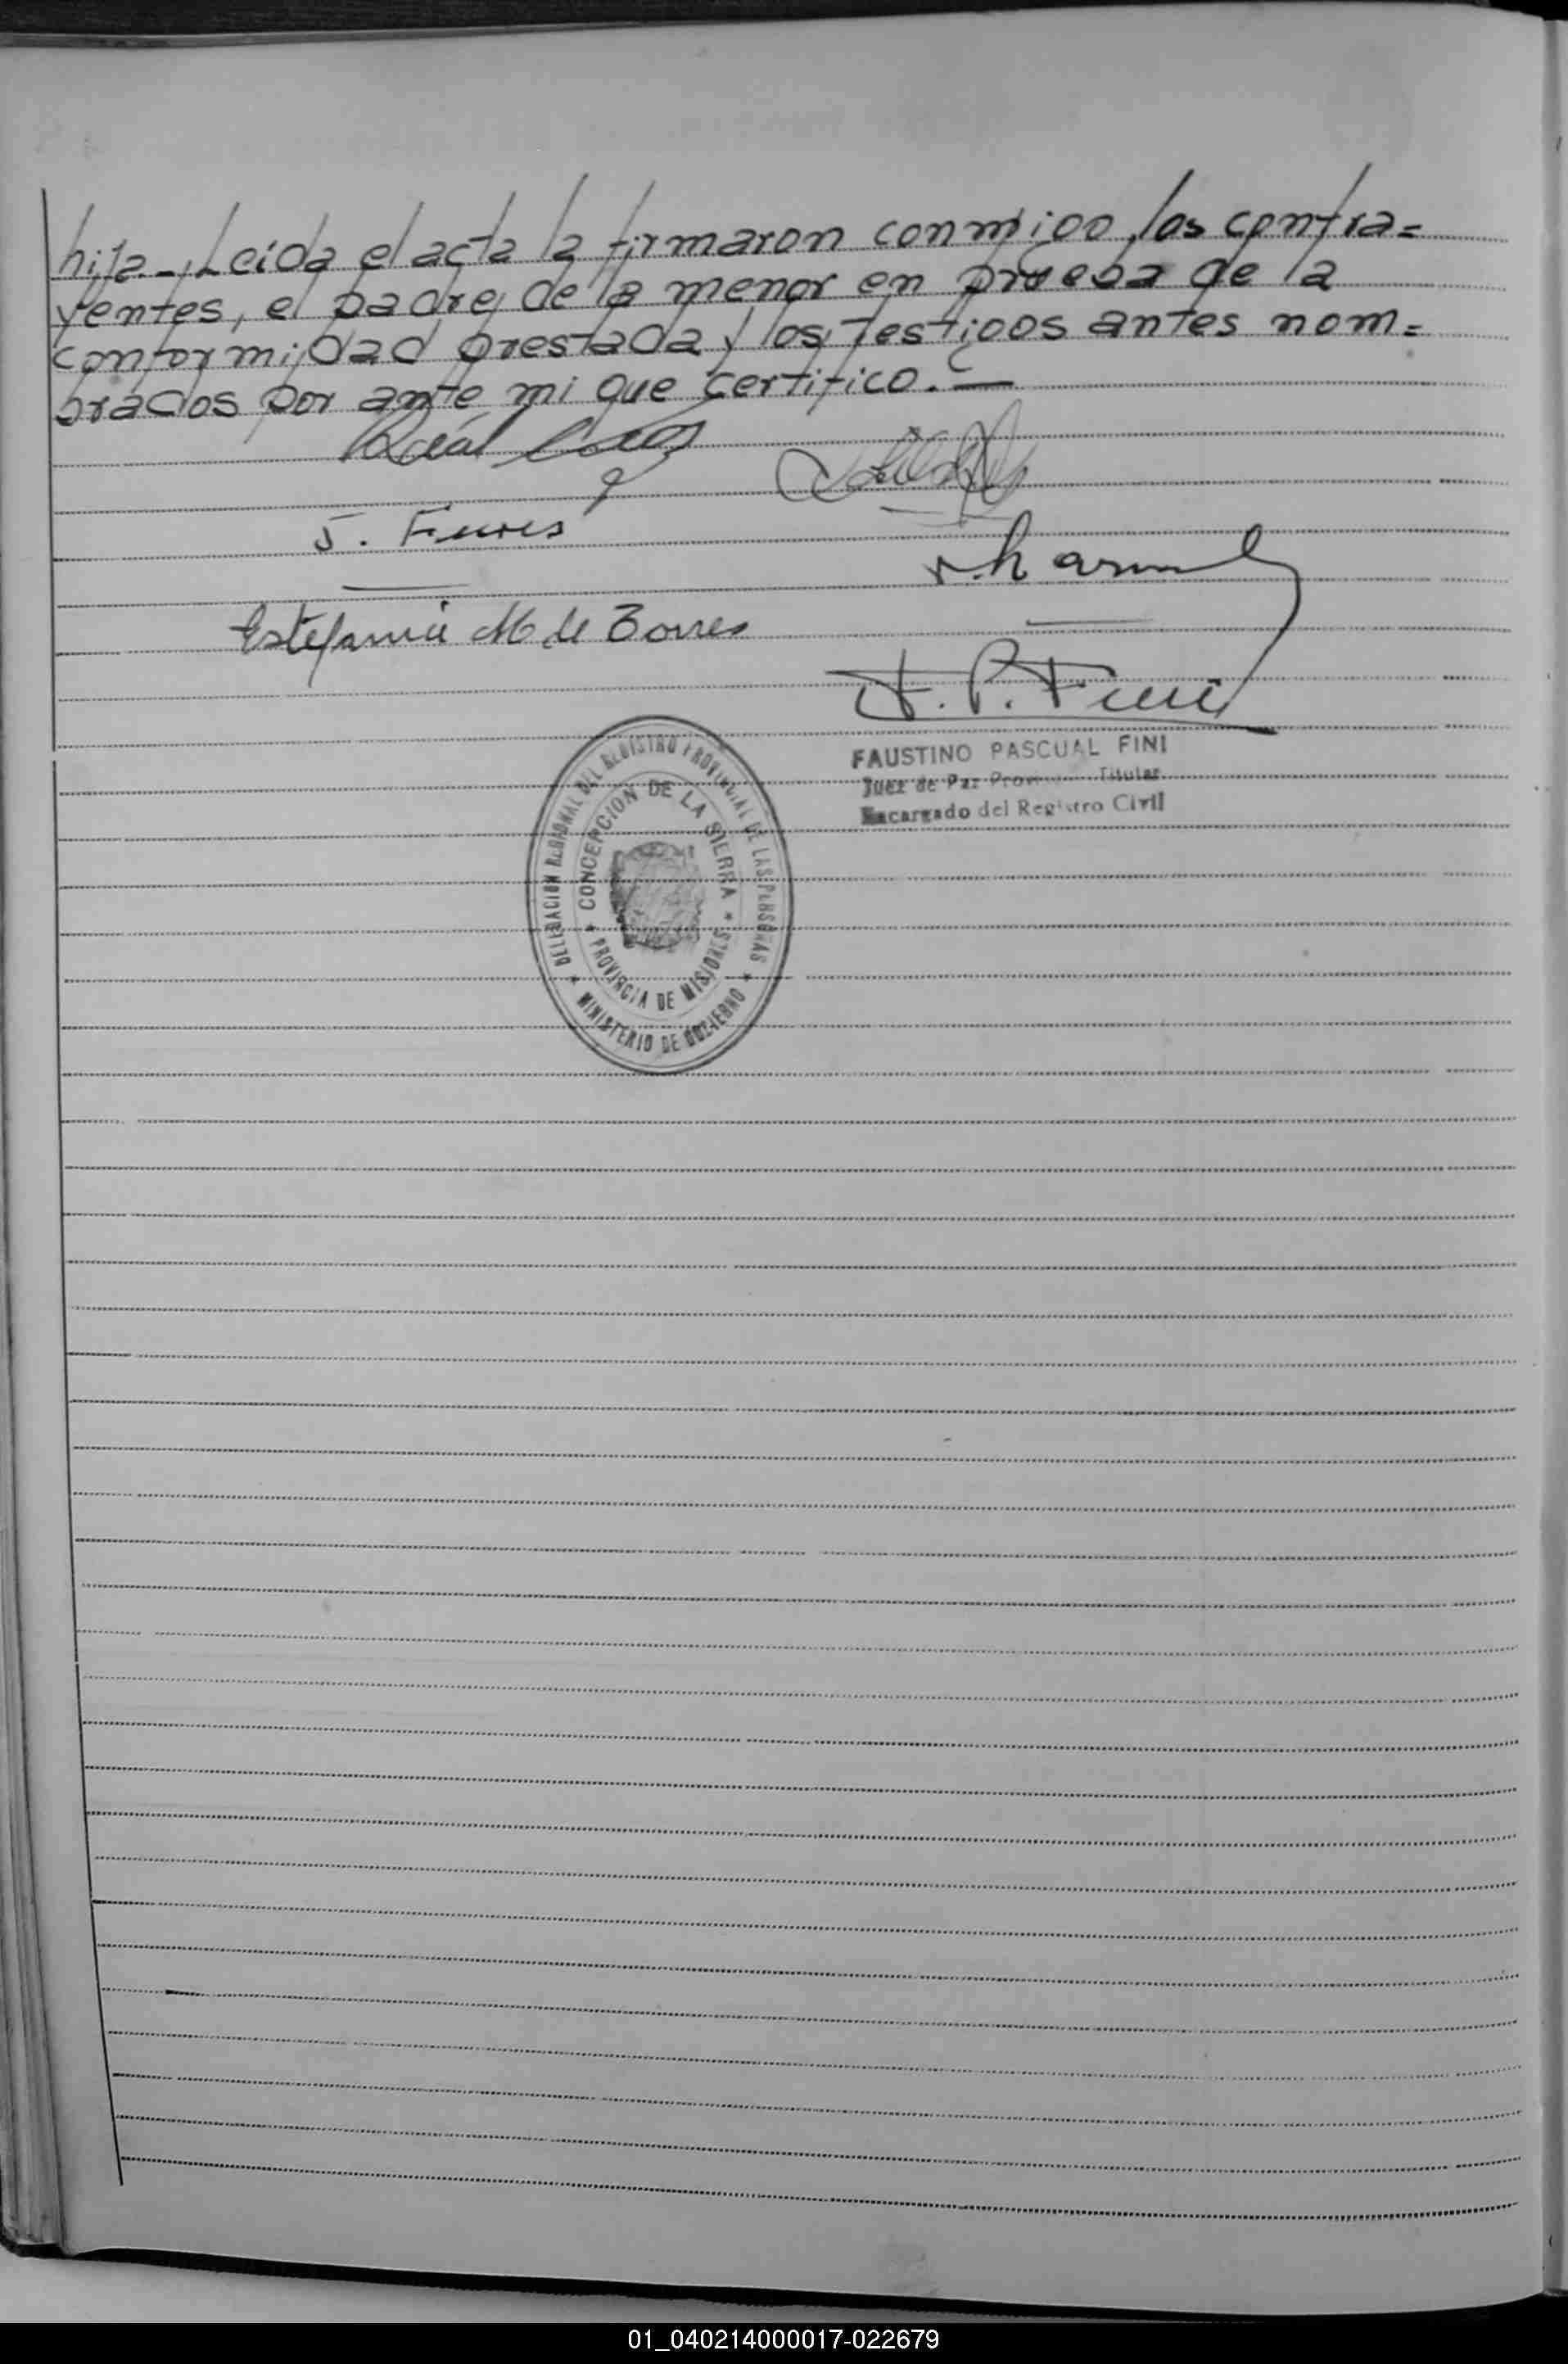 hija.- Leída el acta la firmaron conmigo, los contra=
yentes, el padre de la menor en prueba de la
conformidad prestada y los testigos antes nom=
brados por ante mi que certifico. —
J.
Estefania M de Torres
F. P. Fini
FAUSTINO PASCUAL FINI
Juez de Paz Titular
Encargado del Registro Civil
DELEGACION REGIONAL DEL REGISTRO PROVINCIAL DE LAS PERSONAS
CONCEPCION DE LA SIERRA
* PROVINCIA DE MISIONES *
* MINISTERIO DE GOBIERNO *
01_040214000017-022679